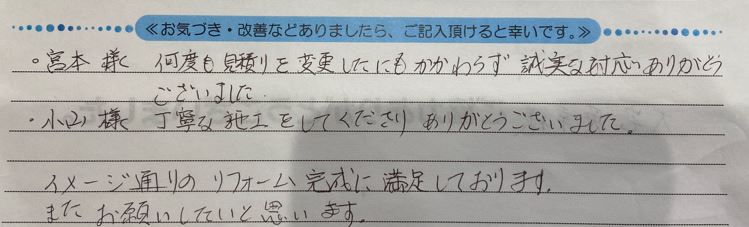 ≪お気づき・改善などありましたら、ご記入頂けると幸いです。≫
・宮本様 何度も見積りを変更したにもかかわらず 誠実な対応ありがとう
ございました
・小山様 丁寧な施工をしてくださり ありがとうございました。
イメージ通りの リフォーム 完成に 満足しております。
また お願いしたいと思います。